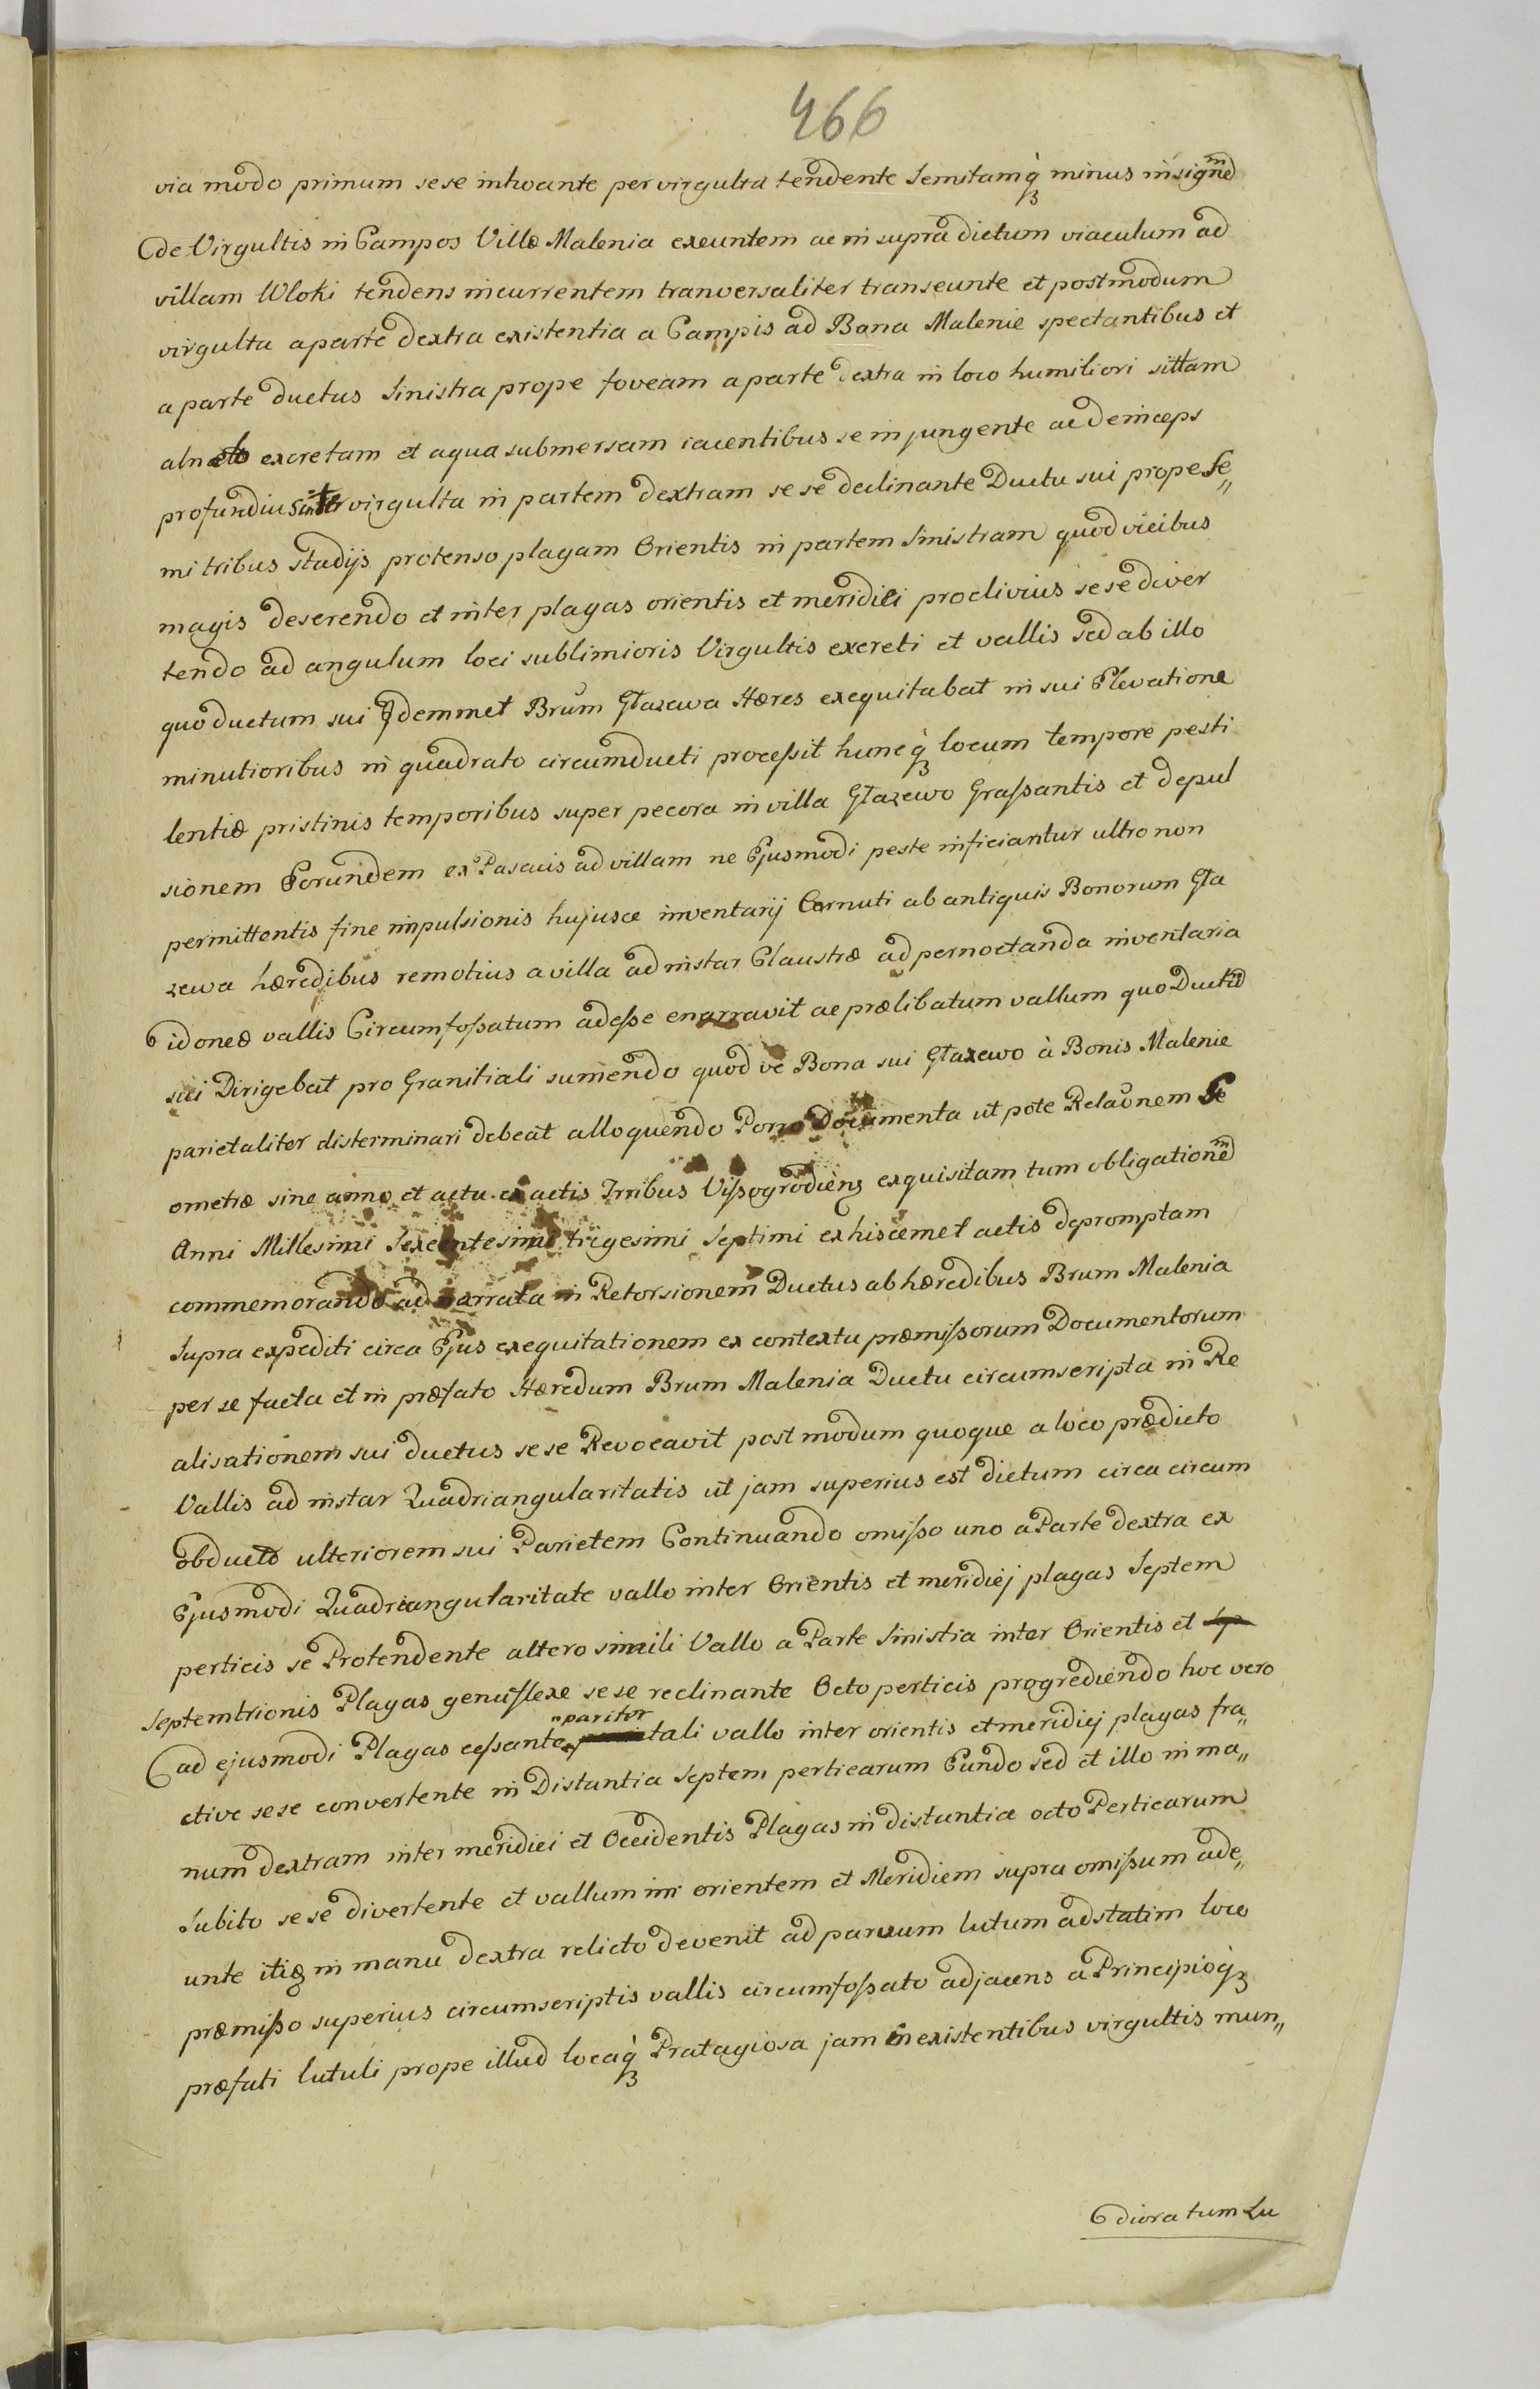 466
via modo primum sese inhoante per virgulta tendente Semitamq̀ minus insigne͂m
de Virgultis in Campos Villæ Malenia exeuntem ac in supra dictum viaculum ad
villam Wloki tendens incurrentem tranversaliter transeunte et postmodum
virgulta a parte dextra existentia a Campis ad Bona Malenie spectantibus et
a parte ductus Sinistra prope foveam a parte dextra in loco humiliori sittam
alneto excretam et aqua submersam iacentibus se injungente ac deinceps
profundius inter virgulta in partem dextram se se declinante Ductu sui prope Se„
mi tribus Stadijs protenso plagam Orientis in partem Sinistram quod vicibus
magis deserendo et inter plagas orientis et meridiei proclivius sese diver
tendo ad angulum loci sublimioris Virgultis excreti et vallis sed ab illo
quo ductum sui Jdemmet Brum̃ Głazewa Hæres exequitabat in sui Elevatione
minutioribus in quadrato circumducti processit huncq̀ locum tempore pesti
lentiæ pristinis temporibus super pecora in villa Głazewo Grassantis et depul
sionem Eorundem ex Pascuis ad villam ne Ejusmodi peste inficiantur ultro non
permittentis fine impulsionis hujusce inventarij Cornuti ab antiquis Bonorum Gła
zewa hæredibus remotius a villa ad instar Claustræ ad pernoctanda inventaria
idoneæ vallis Circumfossatum adesse enarravit ac prælibatum vallum quo Ductum
sui Dirigebat pro Granitiali sumendo quod ve Bona sui Głazewo à Bonis Malenie
parietaliter disterminari debeat alloquendo Porro Documenta ut pote Rela͂onem Ge
ometræ sine anno et actu ex actis Trribus Vissogrodièns exquisitam tum obligatione͂m
Anni Millesimi Sexcentesimi trigesimi Septimi ex hiscemet actis depromptam
commemorando ad narrata in Retorsionem Ductus ab hæredibus Brum Malenia
Supra expediti circa Ejus exequitationem ex contextu præmissorum Documentorum
per se facta et in præfato Hæredum Brum Malenia Ductu circumscripta in Re
alisationem sui ductus sese Revocavit post modum quoque a loco prædicto
Vallis ad instar Quadriangularitatis ut jam superius est dictum circa circum
obducto ulteriorem sui Parietem Continuando omisso uno a Parte dextra ex
Ejusmodi Quadriangularitate vallo inter Orientis et meridiej plagas Septem
perticis se Protendente altero simili Vallo a Parte Sinistra inter Orientis et Sep
Septemtrionis Plagas genuflexe sese reclinante Octo perticis progrediendo hoc vero
ad ejusmodi Plagas cessante „pariter tali vallo inter orientis et meridiej plagas fra„
ctive sese convertente in Distantia Septem perticarum Eundo sed et illo in ma„
num dextram inter meridiei et Occidentis Plagas in distantia octo Perticarum
Subito sese divertente et vallum in orientem et Meridiem supra omissum ade„
unte itiq in manu dextra relicto devenit ad parvum lutum adstatim loco
præmisso superius circumscriptis vallis circumfossato adjacens a Principioq̀
præfati lutuli prope illud locaq̀ Pratagiosa jam inexistentibus virgultis mun„
diora tum Lu